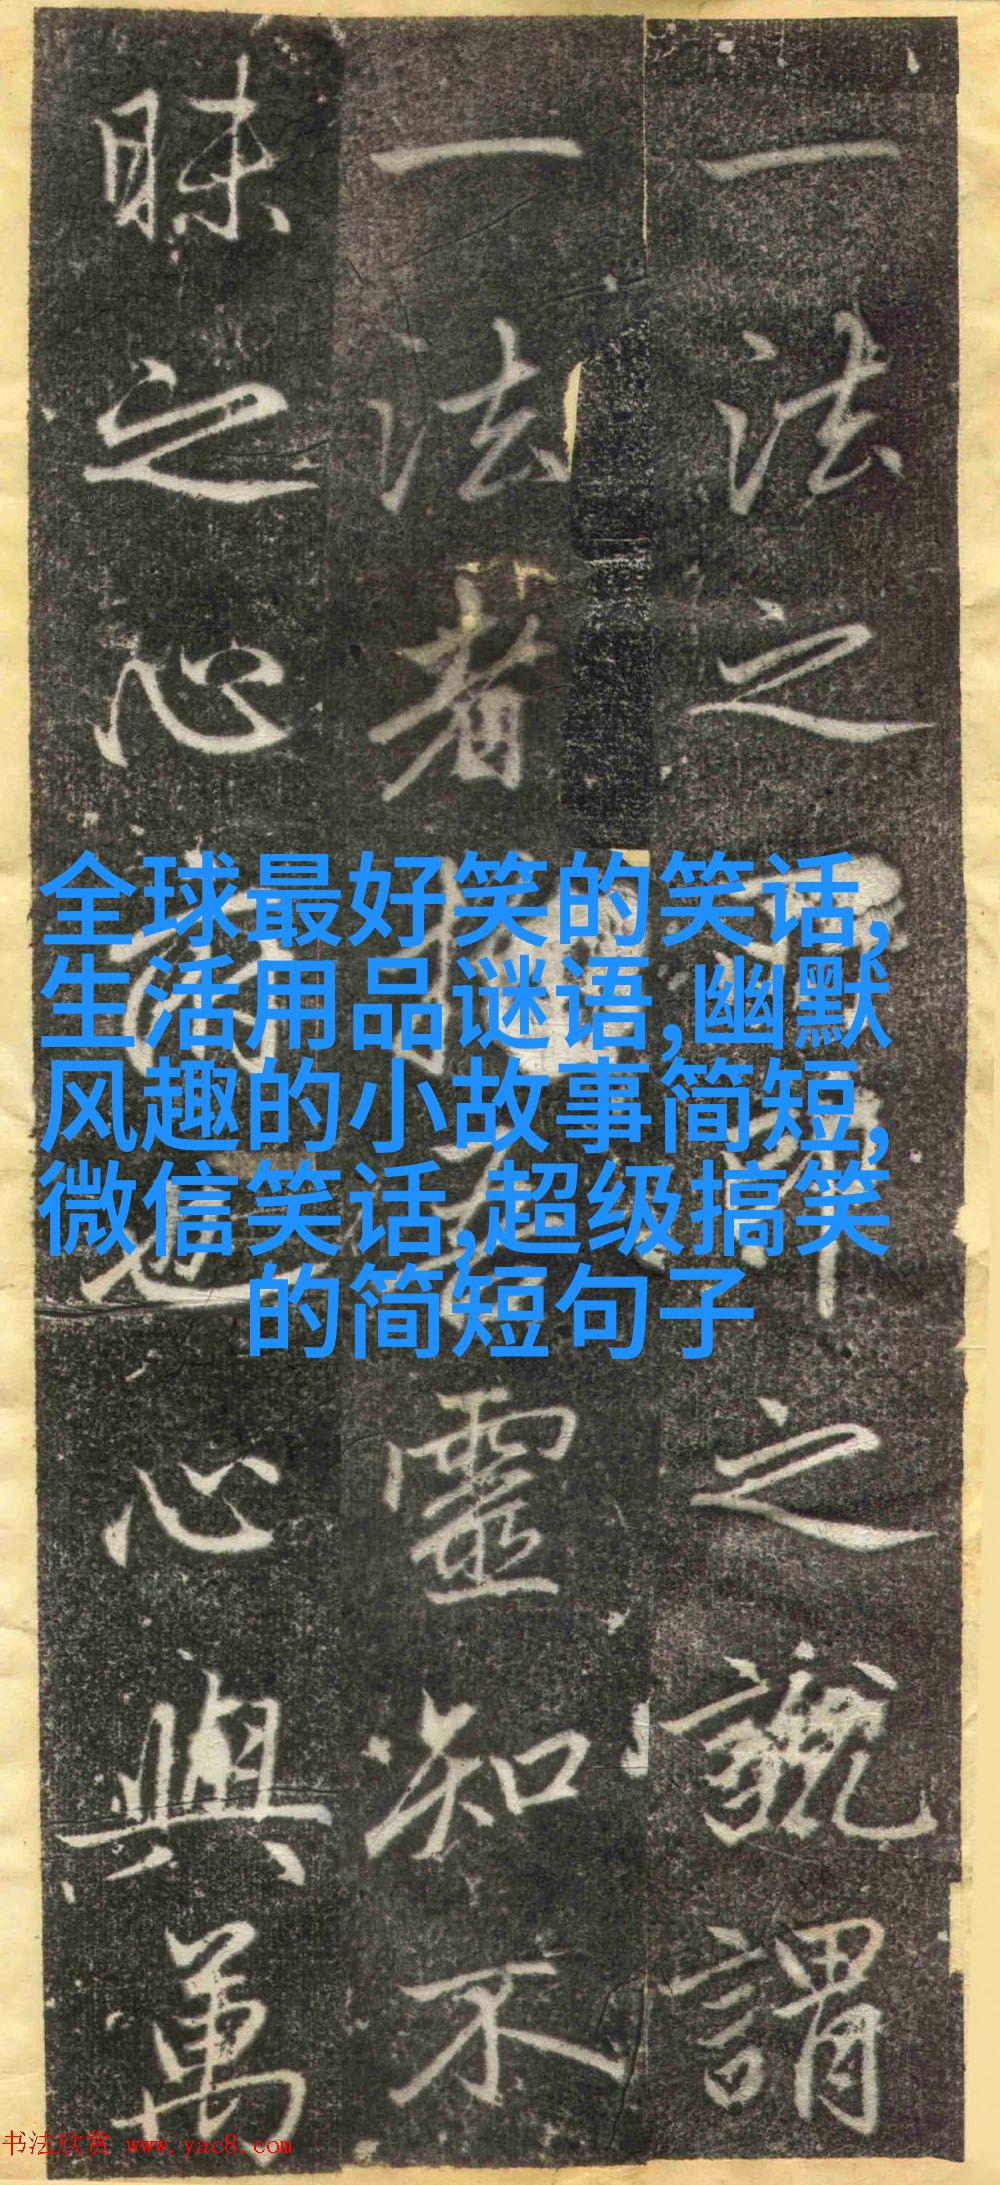 一法之
之
謂
一法者
靈知不
昧之心
也心與萬
全球最好笑的笑话,
生活用品谜语,幽默
风趣的小故事简短,
微信笑话,超级搞笑
的简短句子
书法欣赏 www.yac8.com